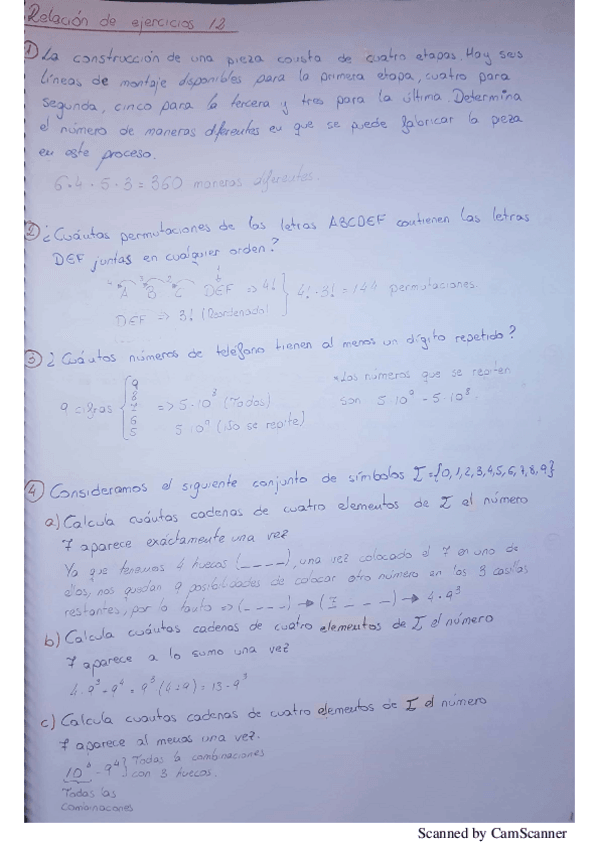 Relación de ejercicios 12
① La construcción de una pieza consta de cuatro etapas. Hay seis
líneas de montaje disponibles para la primera etapa, cuatro para
segunda, cinco para la tercera y tres para la última. Determina
el número de maneras diferentes en que se puede fabricar la pieza
en este proceso.
6·4·5·3 = 360 maneras diferentes.
② ¿Cuántas permutaciones de las letras ABCDEF contienen las letras
DEF juntas en cualquier orden?
A B C DEF => 4! } 4!·3! = 144 permutaciones.
DEF => 3! (Reordenado)
③ ¿Cuántos números de teléfono tienen al menos un dígito repetido?
9 cifras { 9 8 7 6 5 => 5·10⁸ (Todos)
(No se repite)
*Los números que se repiten
son
④ Consideramos el siguiente conjunto de símbolos Σ={0,1,2,3,4,5,6,7,8,9}
a) Calcula cuántas cadenas de cuatro elementos de Σ el número
7 aparece exactamente una vez
Ya que tenemos 4 huecos (_ _ _ _), una vez colocado el 7 en uno de
ellos, nos quedan 9 posibilidades de colocar otro número en las 3 casillas
restantes, por lo tanto => (_ _ _ _) → (7 _ _ _) → 4·9³
b) Calcula cuántas cadenas de cuatro elementos de Σ el número
7 aparece a lo sumo una vez
= 9³(4+9) = 13·9³
c) Calcula cuantas cadenas de cuatro elementos de Σ el número
7 aparece al menos una vez.
10⁴ - 9⁴ } Todas la combinaciones
con 3 huecos.
Todas las
combinaciones
Scanned by CamScanner